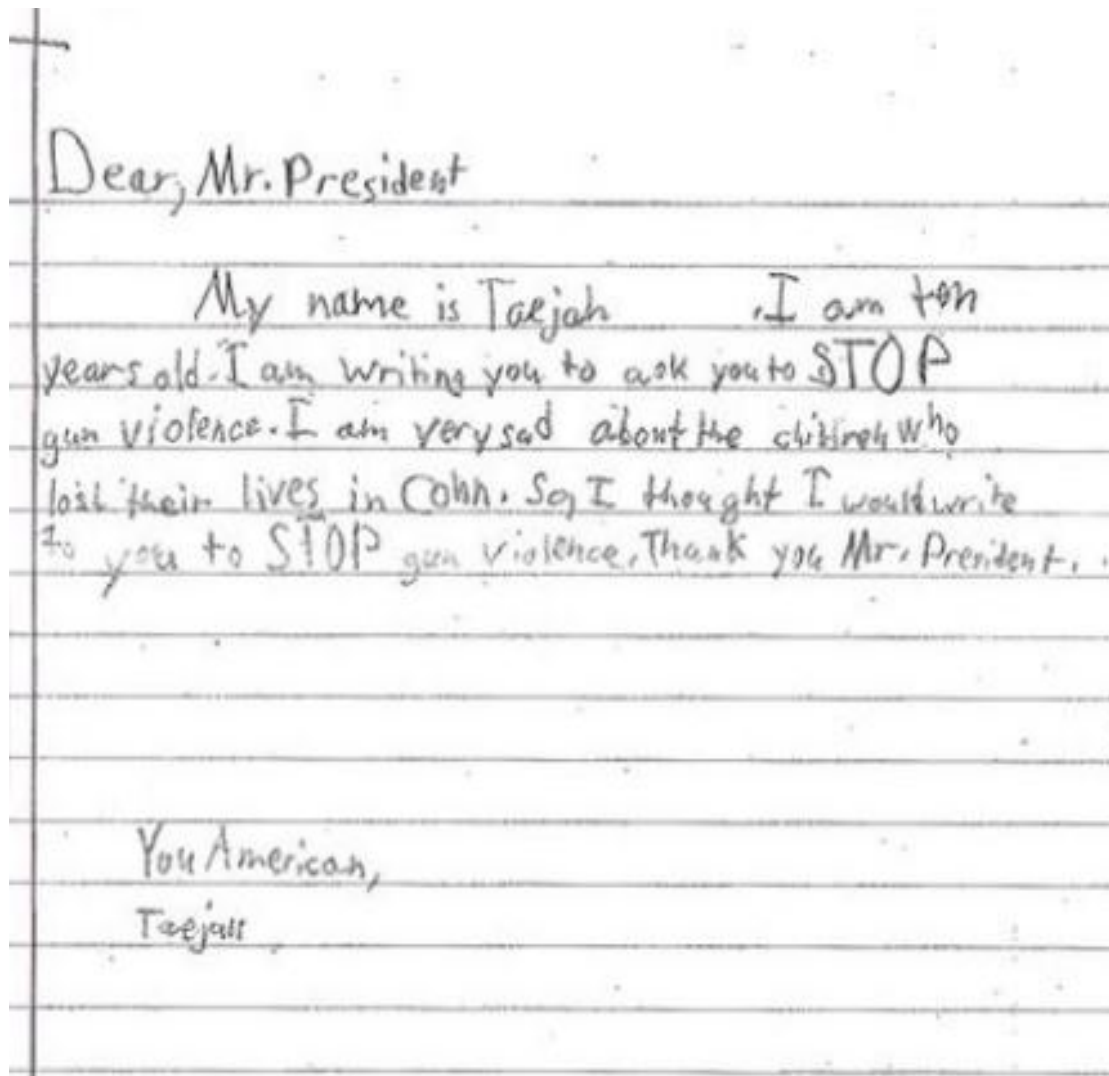 Dear, Mr. President
My name is Taejah .I am ten
years old. I am writing you to ask you to STOP
gun violence. I am very sad about the children who
lost their lives in Conn. So, I thought I would write
to you to STOP gun violence. Thank you Mr. President.
You American,
Taejah